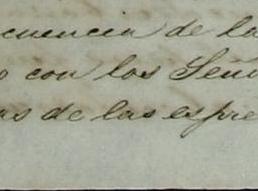 cuencia de la
o con los Seño
as de las espre